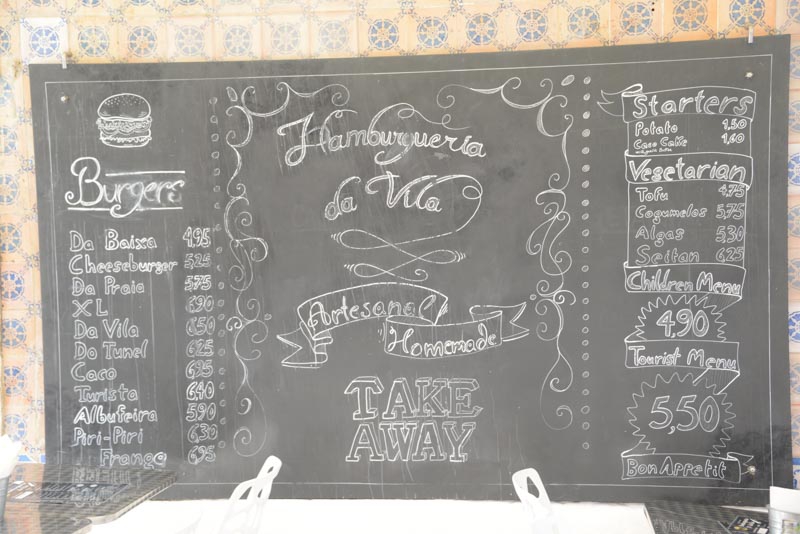 Burgers
Da Baixa 4,95
Cheeseburger 5,25
Da Praia 5,75
XL 6,90
Da Vila 6,50
Do Tunel 6,25
Caco 6,95
Turista 6,40
Albufeira 5,90
Piri-Piri 6,30
Frango 6,95
Hamburgueria
da Vila
Artesanal
Homemade
TAKE
AWAY
Starters
Potato 1,50
Caco Cake 1,60
Vegetarian
Tofu 4,75
Cogumelos 5,75
Algas 5,30
Seitan 6,25
Children Menu
4,90
Tourist Menu
5,50
Bon Appetit